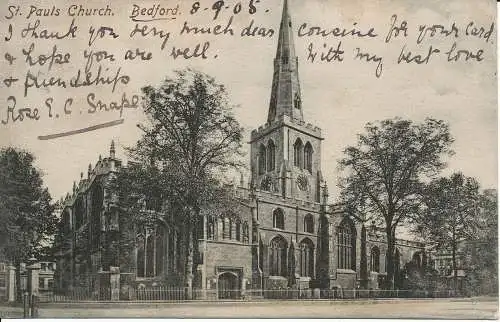 St. Pauls Church. Bedford. 8-9-05
I thank you very much dear cousine for your card
& hope you are well. With my best love
& friendship
Rose E. C. Snape